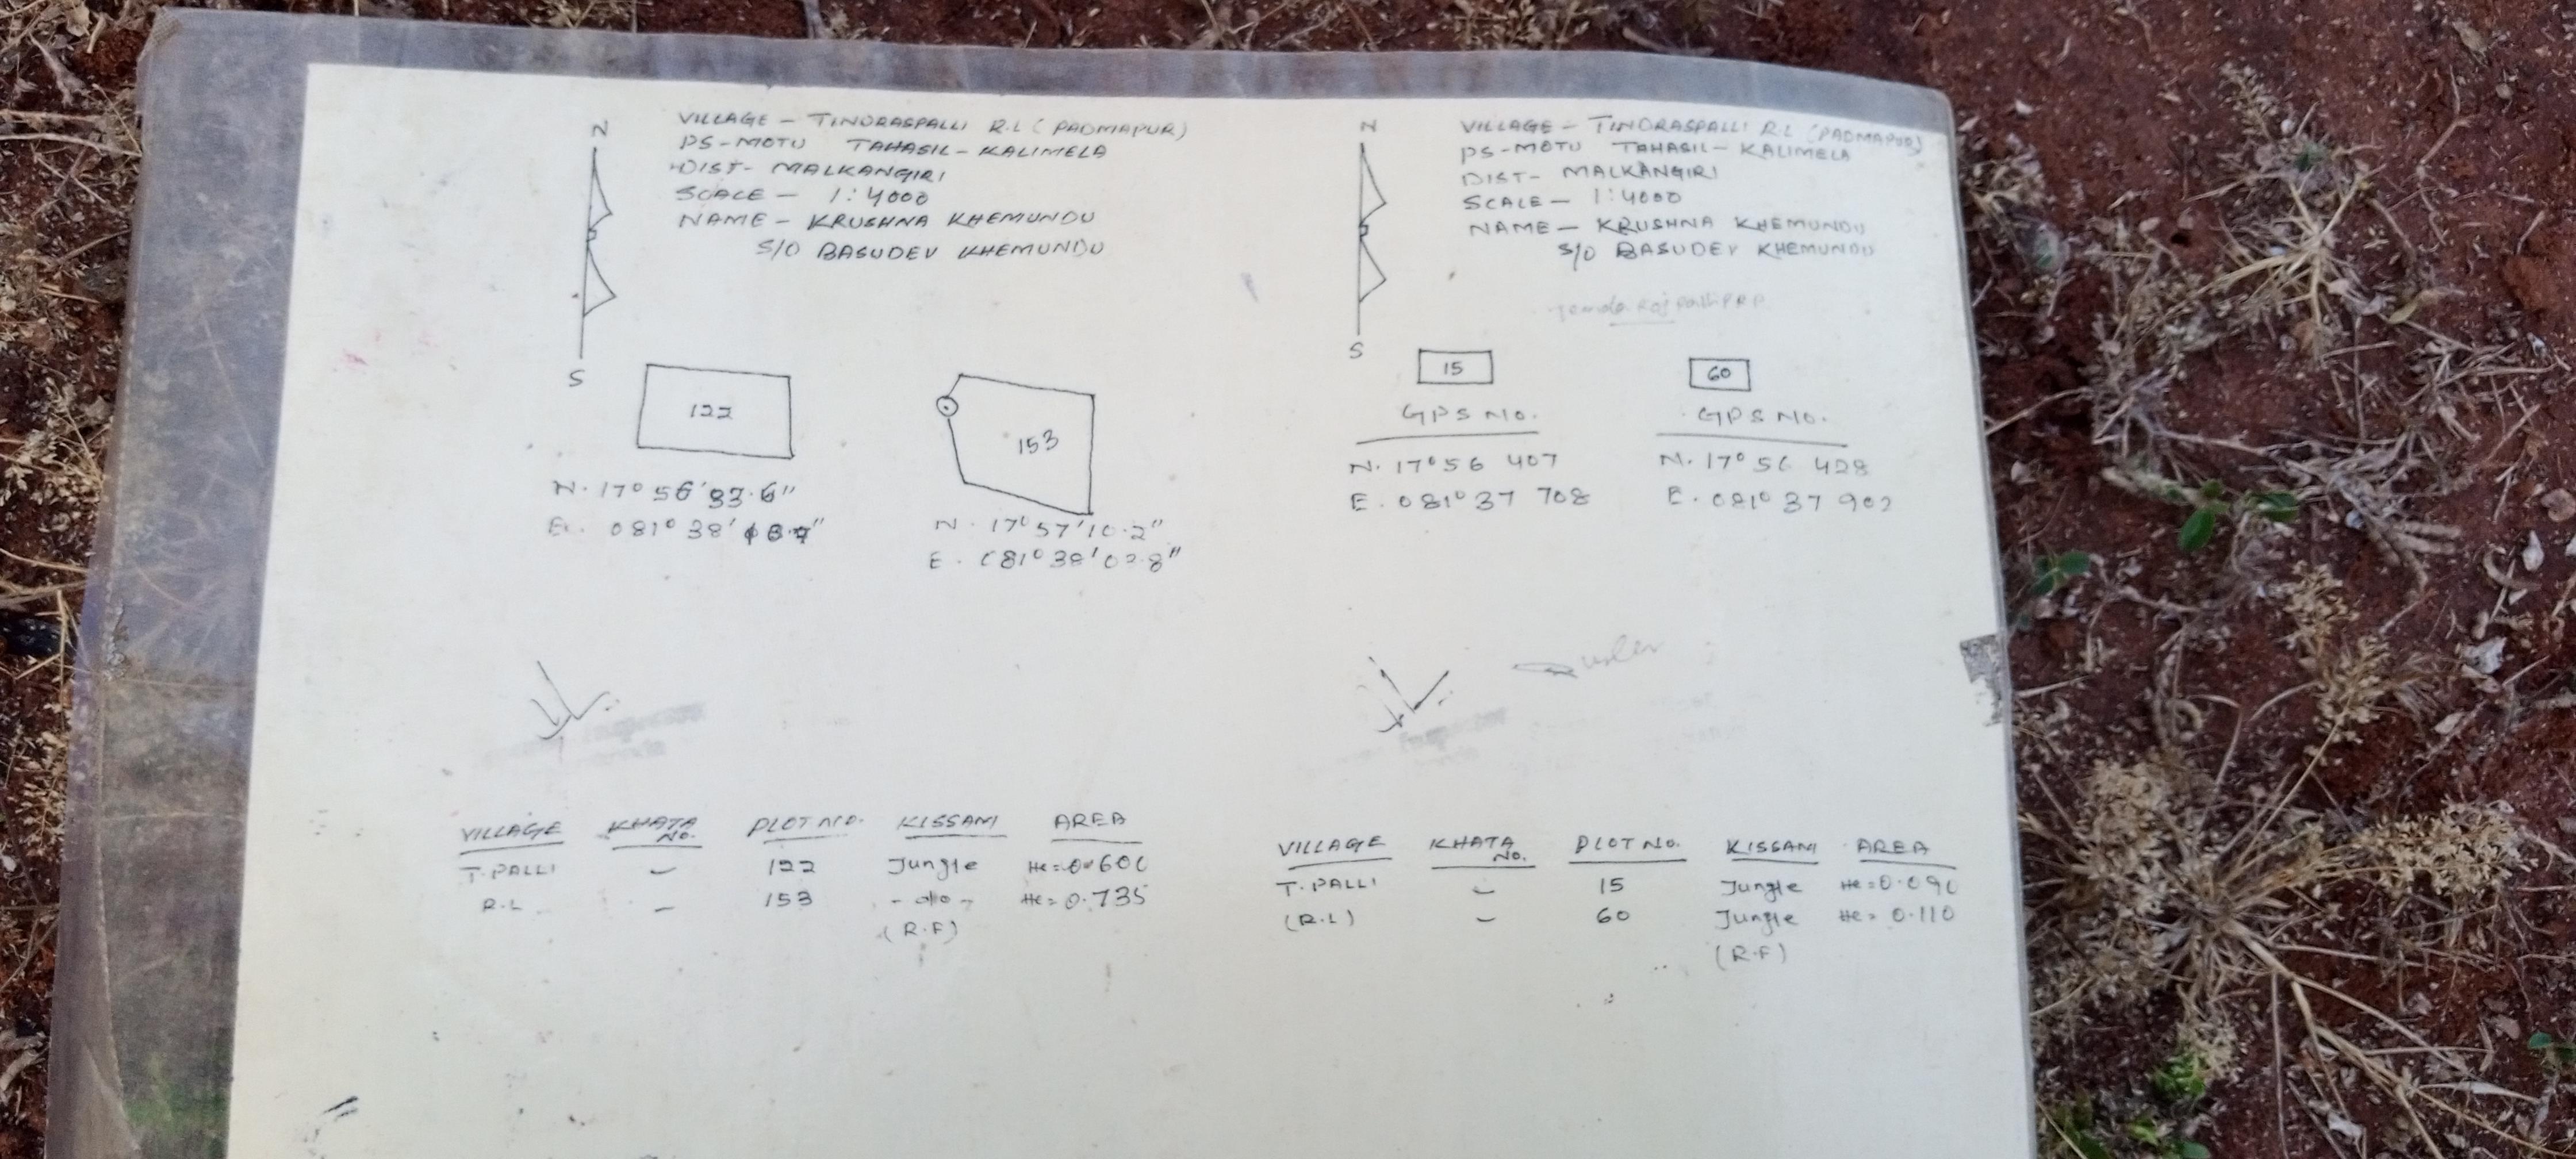 N
VILLAGE - TINDRASPALLI R.L (PADMAPUR)
PS-MOTU TAHASIL - KALIMELA
DIST- MALKANGIRI
SCALE - 1:4000
NAME - KRUSHNA KHEMUNDU
S/O BASUDEV KHEMUNDU
S
122
153
N. 17° 56'
E. 081° 38'
N. 17° 57' 10.2"
E. 081° 38' 02.8"
VILLAGE KHATA No. PLOT NO. KISSAM AREA
T. PALLI - 122 Jungle
R.L - 153 - do - He = 0.735
(R.F)
N
VILLAGE - TINDRASPALLI R.L (PADMAPUR)
PS-MOTU TAHASIL - KALIMELA
DIST- MALKANGIRI
SCALE - 1:4000
NAME - KRUSHNA KHEMUNDU
S/O BASUDEV KHEMUNDU
S
15
60
GPS NO.
N. 17° 56 407
E. 081° 37 708
GPS NO.
N. 17° 56 428
E. 081° 37 902
VILLAGE KHATA No. PLOT NO. KISSAM AREA
T. PALLI - 15 Jungle He = 0.090
(R.L) - 60 Jungle He = 0.110
(R.F)